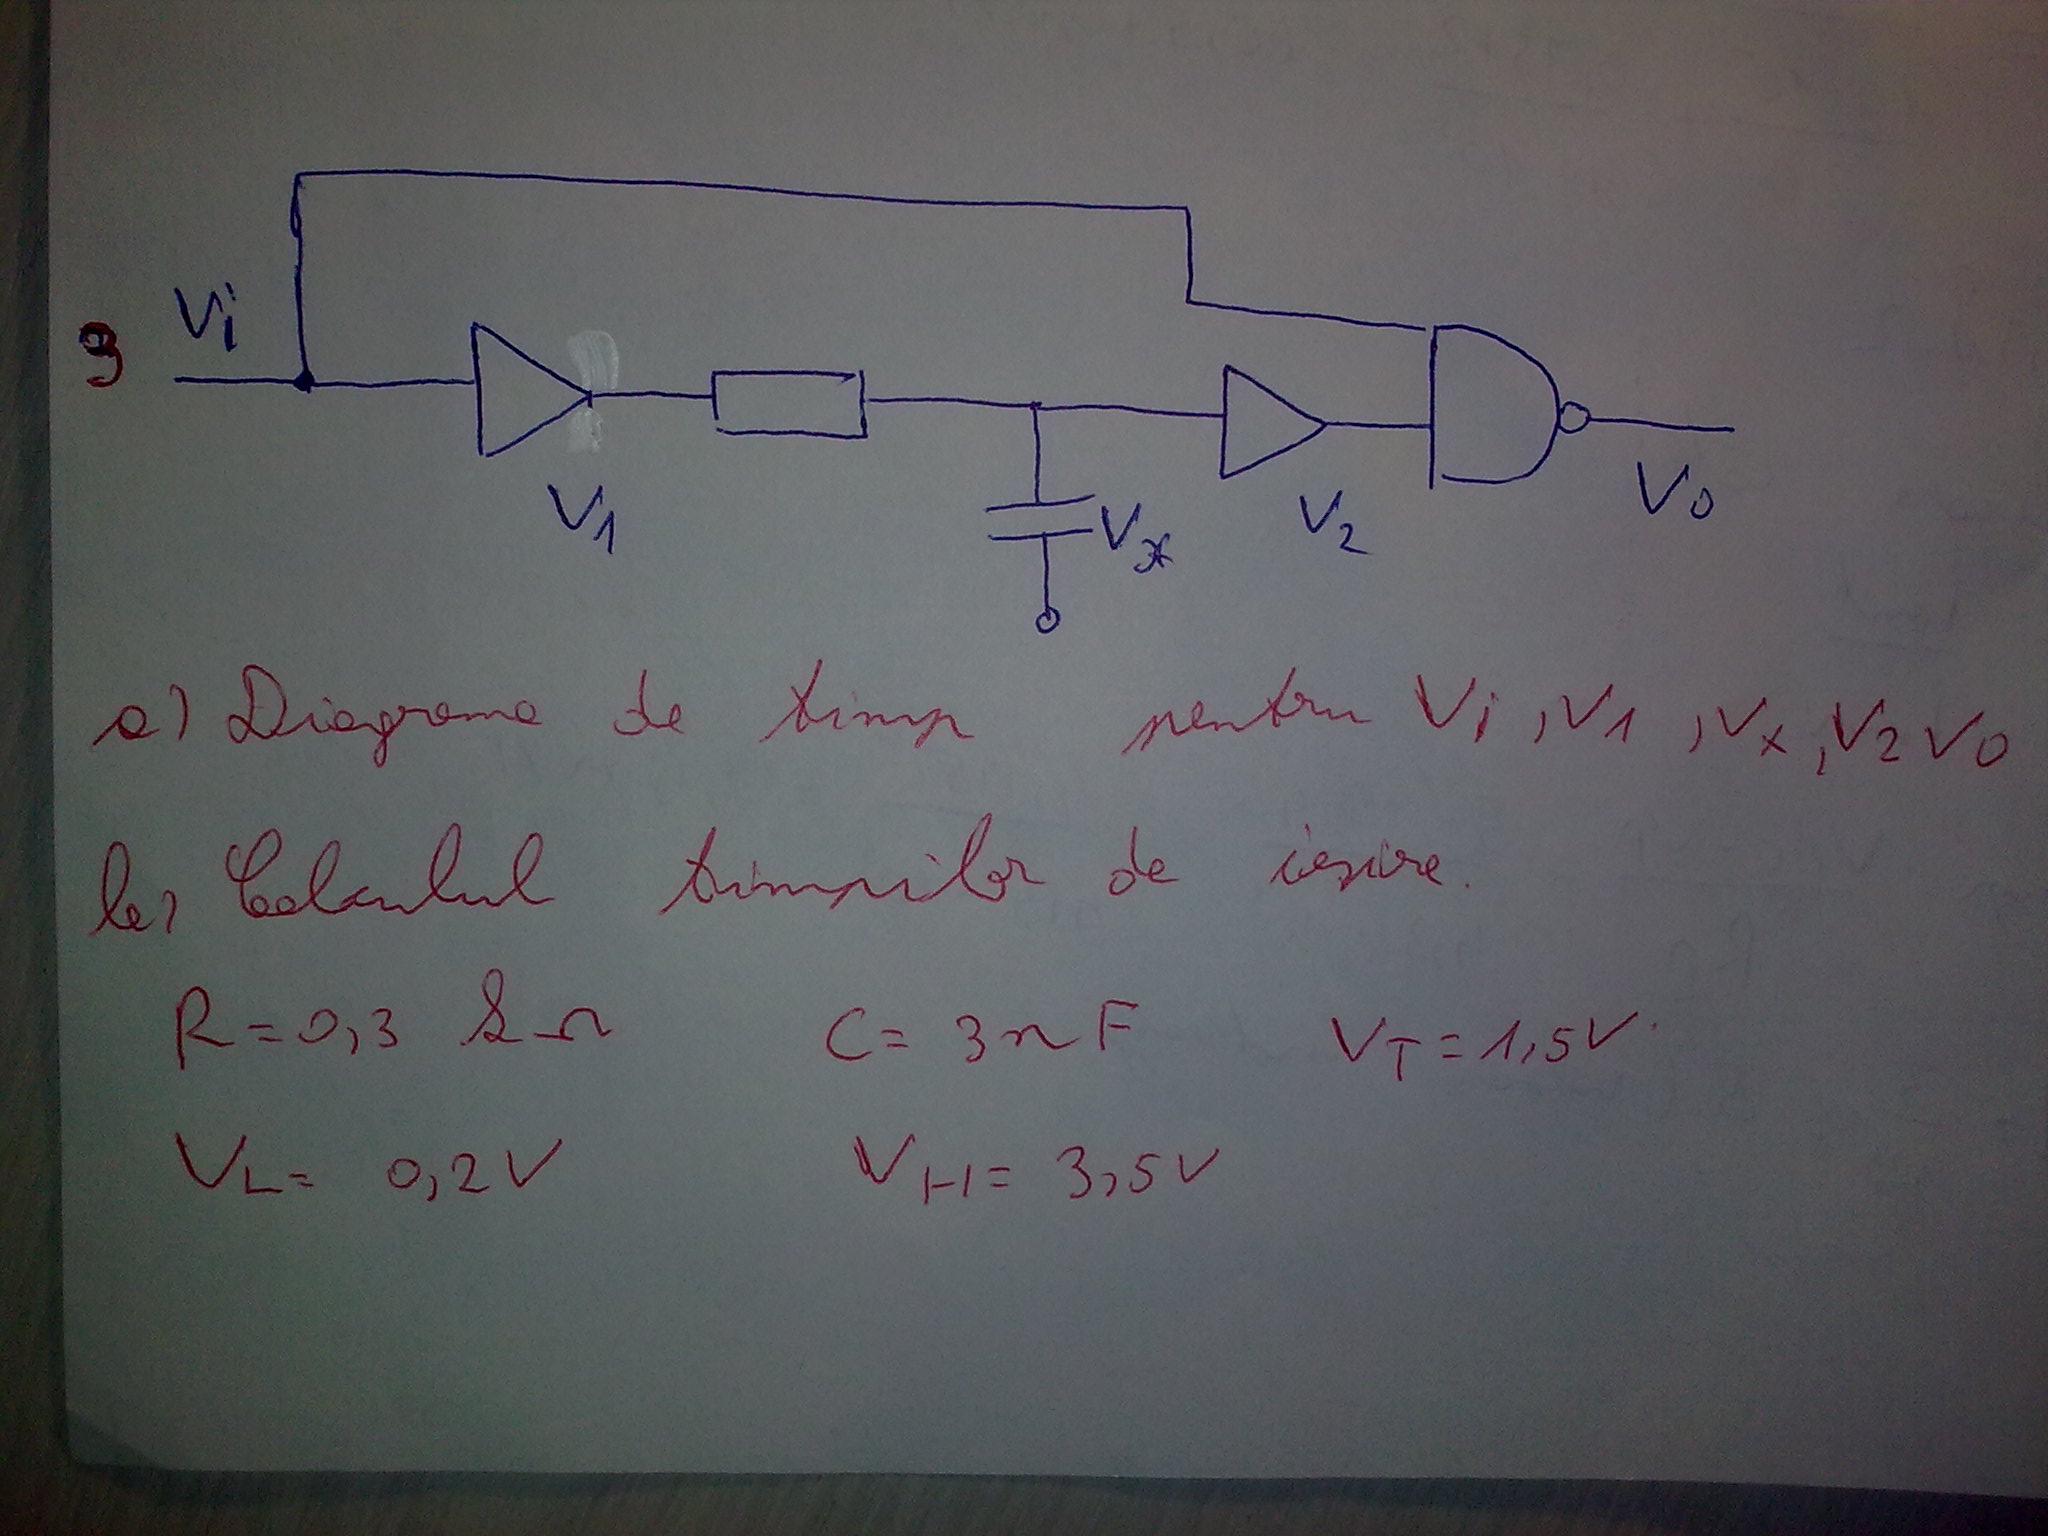 3
Vi
V1
Vx
V2
V0
a) Diagrama de timp pentru Vi, V1, Vx, V2 V0
b) Calculul timpilor de iesire.
R=0,3 kΩ C= 3nF VT=1,5V.
VL= 0,2V VH= 3,5V